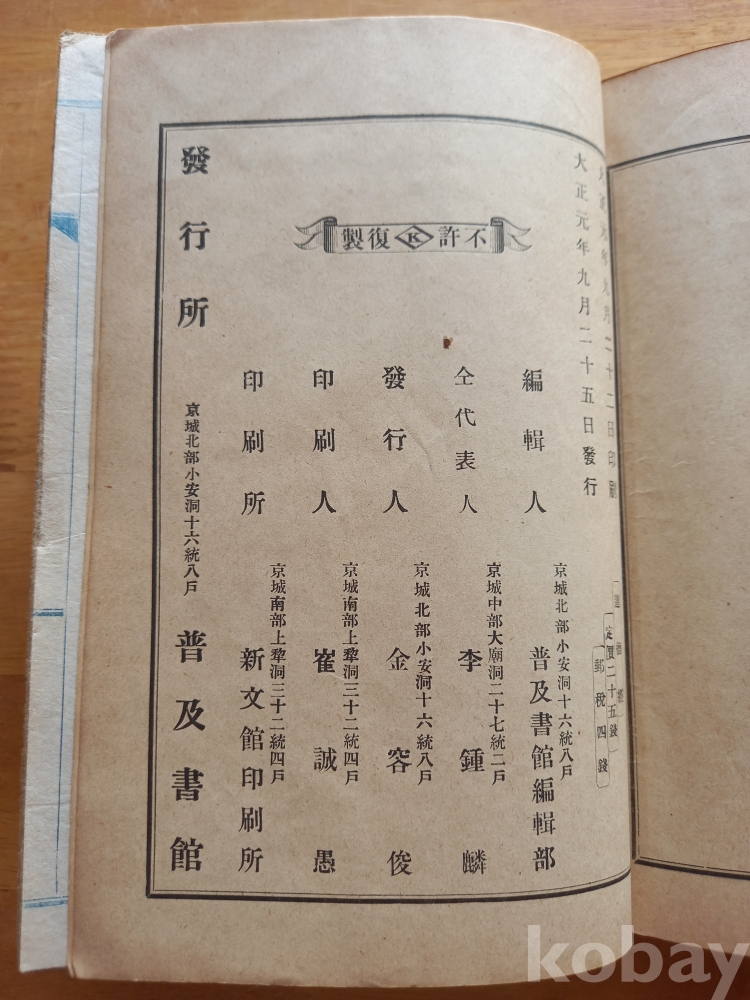 大正元年九月二十二日印刷
大正元年九月二十五日發行
定價二十五錢
郵稅四錢
不許K復製
編輯人
京城北部小安洞十六統八戶
普及書館編輯部
仝代表人
京城中部大廟洞二十七統二戶
李鍾麟
發行人
京城北部小安洞十六統八戶
金容俊
印刷人
京城南部上犂洞三十二統四戶
崔誠愚
印刷所
京城南部上犂洞三十二統四戶
新文館印刷所
發行所
京城北部小安洞十六統八戶
普及書館
kobay